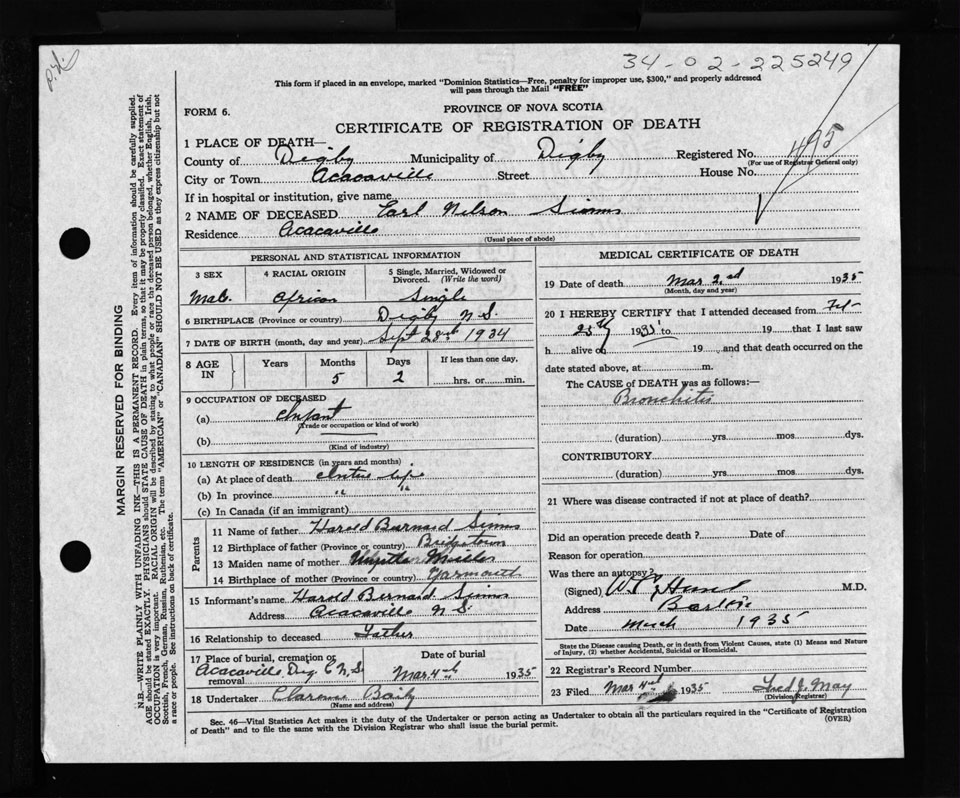 34-02-225249
This form if placed in an envelope, marked "Dominion Statistics—Free, penalty for improper use, $300," and properly addressed
will pass through the Mail "FREE"
FORM 6.
PROVINCE OF NOVA SCOTIA
CERTIFICATE OF REGISTRATION OF DEATH
495
1 PLACE OF DEATH—
County of Digby Municipality of Digby Registered No.
(For use of Registrar General only)
City or Town Acacaville Street House No.
If in hospital or institution, give name
2 NAME OF DECEASED Earl Nelson Simms
Residence Acacaville
(Usual place of abode)
PERSONAL AND STATISTICAL INFORMATION
3 SEX 4 RACIAL ORIGIN 5 Single, Married, Widowed or Divorced. (Write the word)
Male. African Single
6 BIRTHPLACE (Province or country) Digby N S.
7 DATE OF BIRTH (month, day and year) Sept 28th 1934
8 AGE IN Years Months Days If less than one day,
5 2 hrs. or min.
9 OCCUPATION OF DECEASED
(a) Infant
(Trade or occupation or kind of work)
(b)
(Kind of industry)
10 LENGTH OF RESIDENCE (in years and months)
(a) At place of death Entire life
(b) In province " "
(c) In Canada (if an immigrant)
Parents
11 Name of father Harold Barnard Simms
12 Birthplace of father (Province or country) Bridgetown
13 Maiden name of mother
14 Birthplace of mother (Province or country) Yarmouth
15 Informant's name Harold Bernard Simms
Address Acacaville N S.
16 Relationship to deceased Father
17 Place of burial, cremation or removal Date of burial
Acacaville, Dig. C N.S. Mar 4th 1935
18 Undertaker Clarence
(Name and address)
MEDICAL CERTIFICATE OF DEATH
19 Date of death Mar 2nd 1935
(Month, day and year)
20 I HEREBY CERTIFY that I attended deceased from Feb
25th 1935 to 19 that I last saw
h alive on 19 and that death occurred on the
date stated above, at m.
The CAUSE of DEATH was as follows:—
Bronchitis
(duration) yrs. mos. dys.
CONTRIBUTORY
(duration) yrs. mos. dys.
21 Where was disease contracted if not at place of death?
Did an operation precede death? Date of
Reason for operation
Was there an autopsy?
(Signed) M.D.
Address
Date March 1935
State the Disease causing Death, or to death from Violent Causes, state (1) Means and Nature
of Injury, (2) whether Accidental, Suicidal or Homicidal.
22 Registrar's Record Number
23 Filed Mar 4th 1935 Fred J. May
(Division Registrar)
Sec. 46—Vital Statistics Act makes it the duty of the Undertaker or person acting as Undertaker to obtain all the particulars required in the "Certificate of Registration
of Death" and to file the same with the Division Registrar who shall issue the burial permit.
(OVER)
MARGIN RESERVED FOR BINDING
N.B.—WRITE PLAINLY WITH UNFADING INK—THIS IS A PERMANENT RECORD. Every item of information should be carefully supplied.
AGE should be stated EXACTLY. PHYSICIANS should STATE CAUSE OF DEATH in plain terms, so that it may be properly classified. Exact statement of
OCCUPATION is very important. RACIAL ORIGIN will be described by stating to what people or race the deceased person belonged, whether English, Irish,
Scottish, French, German, Russian, Ruthenian, etc. The terms "AMERICAN" or "CANADIAN" SHOULD NOT BE USED as they express citizenship but not
a race or people. See instructions on back of certificate.